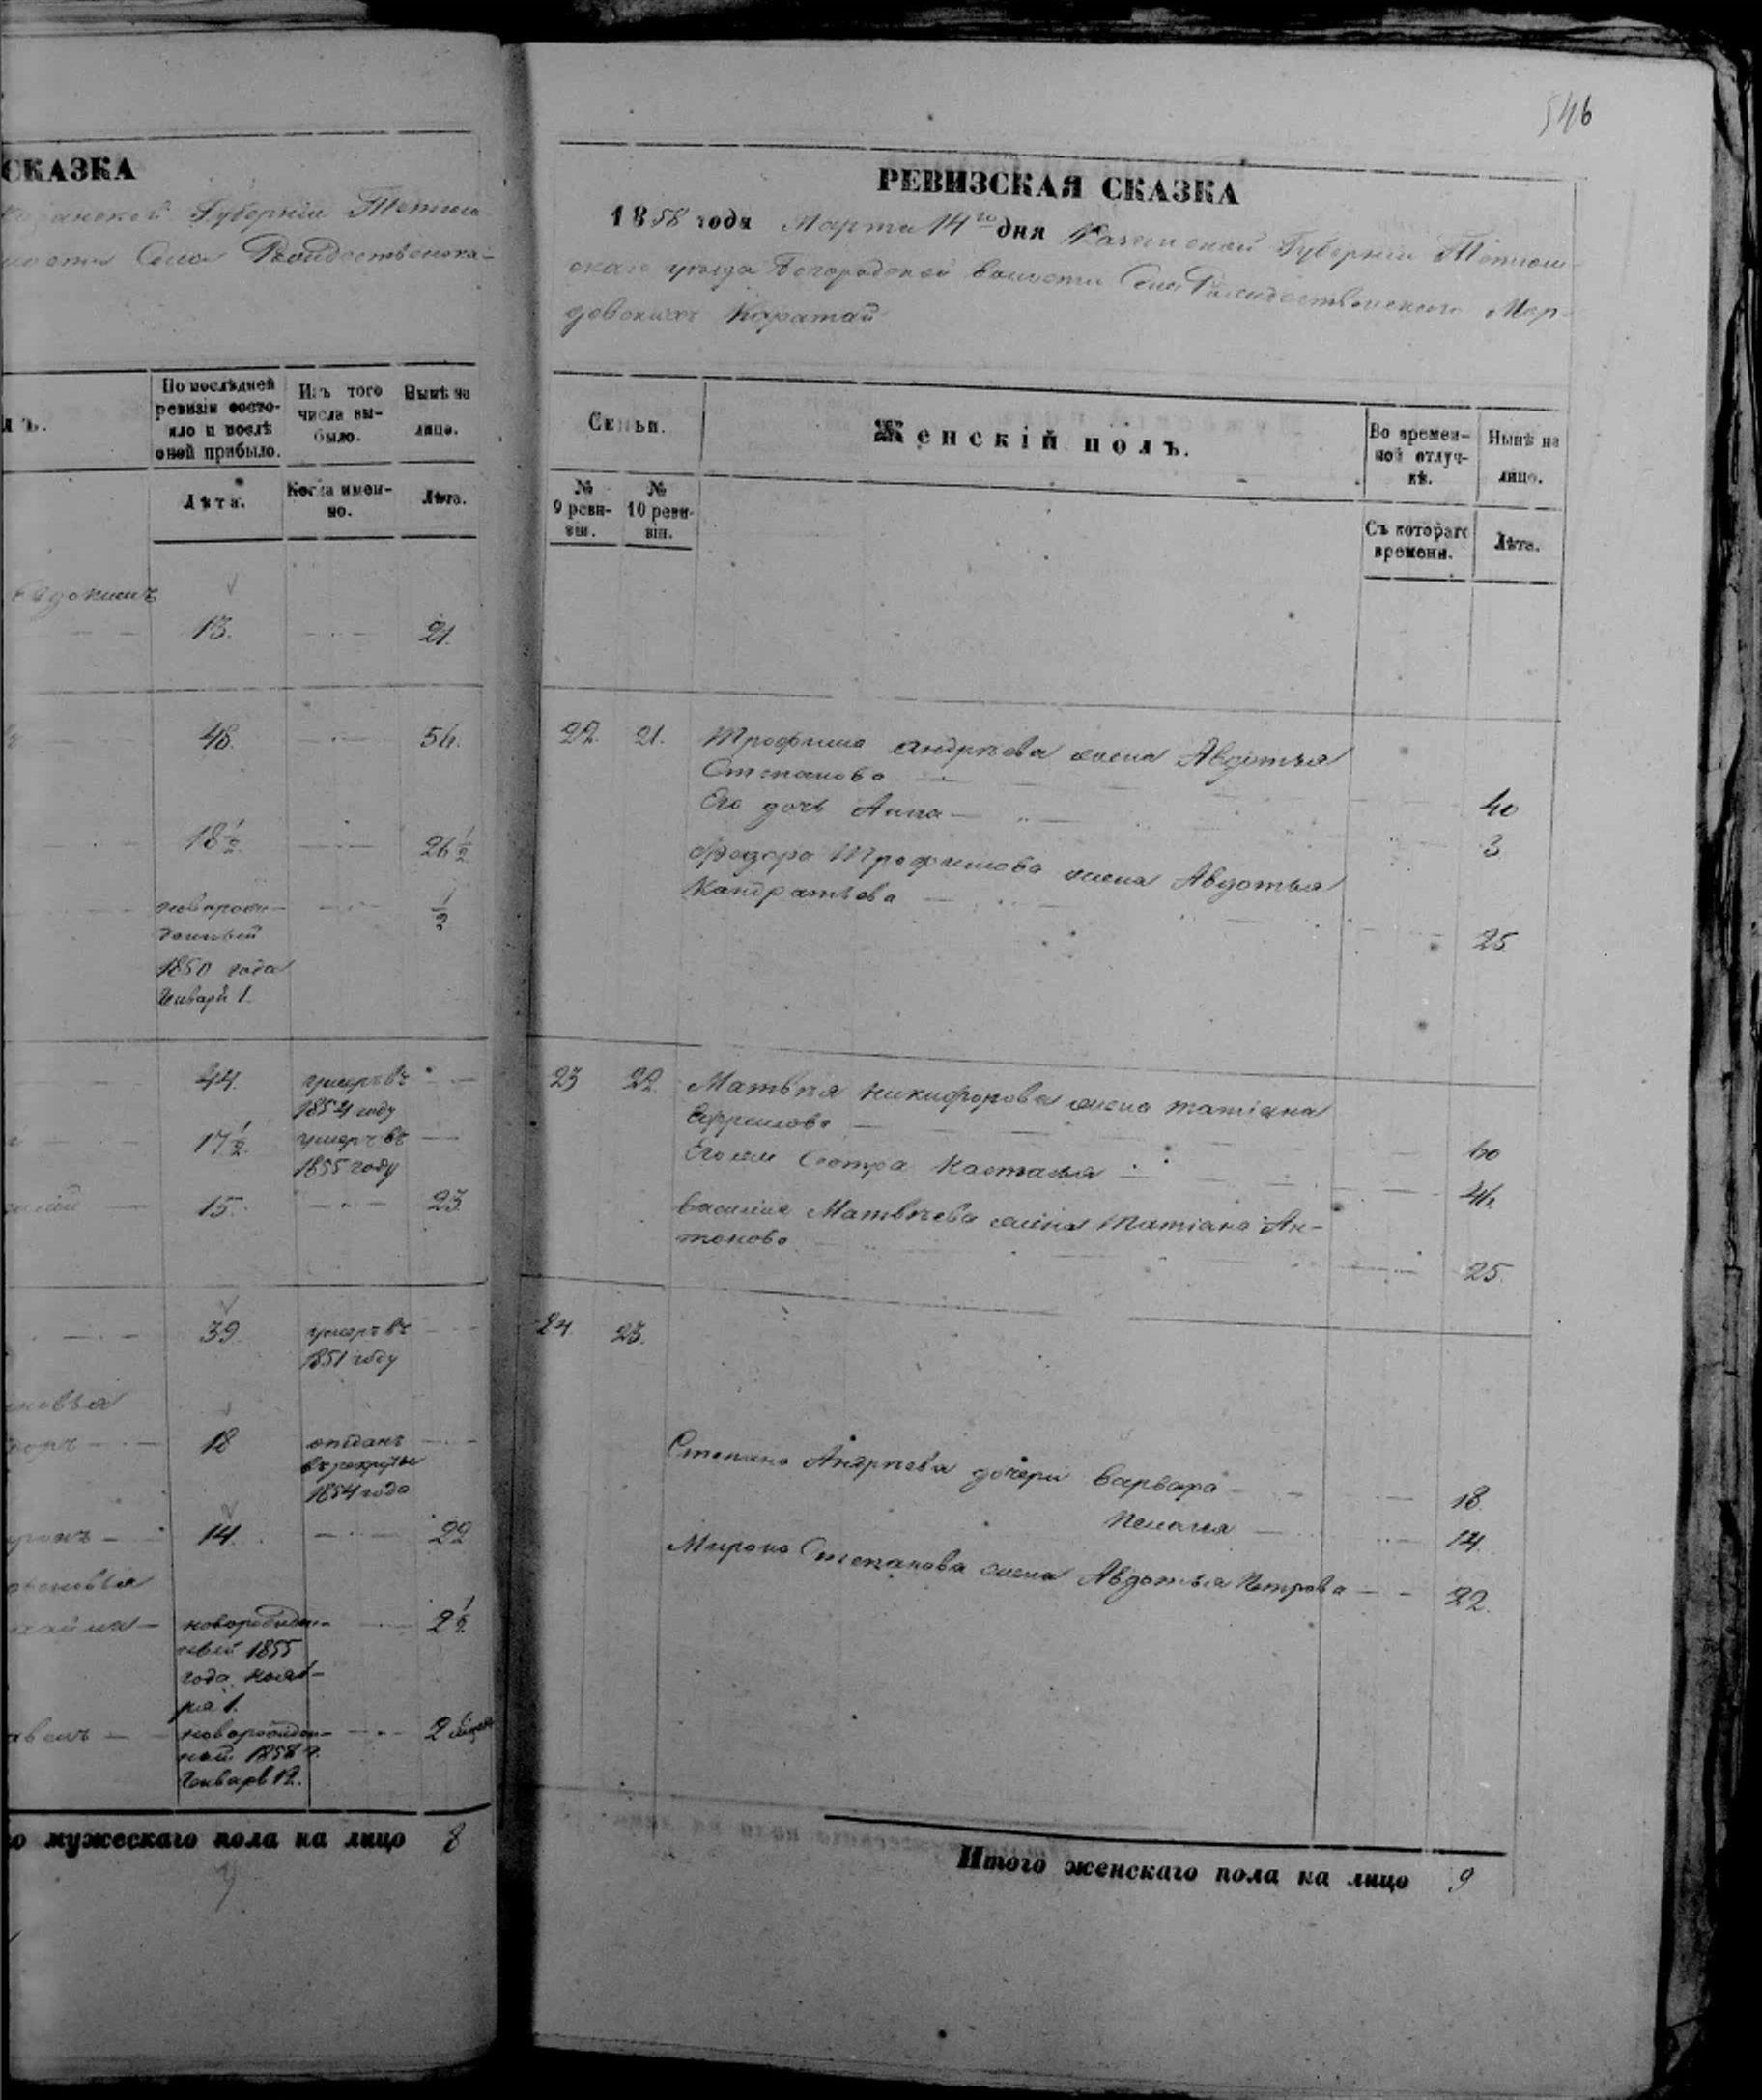 СКАЗКА
Губерніи Тетюш
Села Рождественска-
По послѣдней
ревизіи состо-
яло и послѣ
оной прибыло.
Изъ того
числа вы-
было.
Нынѣ на
лицо.
Лѣта.
Когда имен-
но.
Лѣта.
13. 21.
48. 54.
18½ 26½
новорож-
денный ½
1850 года
Января 1.
44. умеръ въ
1854 году
17½ умеръ въ
1855 году
15. 23
39 умеръ въ
1851 году
18 отданъ
въ рекруты
1854 года
14. 22
новорожден- 2½
ный 1855
года нояб-
ря 1.
новорожден- 2
ный 1858 г.
Января 12.
о мужескаго пола на лицо 8
546
РЕВИЗСКАЯ СКАЗКА
1858 года Марта 14го дня Казанской Губерніи Тетюш-
скаго уѣзда Богородской волости Села Рождественскаго Мор-
довскихъ Каратай
Семьи.
Женскій полъ.
Во времен-
ной отлуч-
кѣ.
Нынѣ на
лицо.
№
9 реви-
зіи.
№
10 реви-
зіи.
Съ котораго
времени.
Лѣта.
22. 21. Трофима Андрѣева жена Авдотья
Степанова 40
Его дочь Анна 3
Федора Трофимова жена Авдотья
Кандратьева 25.
23 22. Матвѣя Никифорова жена Татіана
Ефремова 60
Его же Сестра Настасья 46.
Василія Матвѣева жена Татіана Ан-
тонова 25.
24. 23.
Степана Андрѣева дочери Варвара 18.
Пелагея 14.
Мирона Степанова жена Авдотья Петрова 22.
Итого женскаго пола на лицо 9